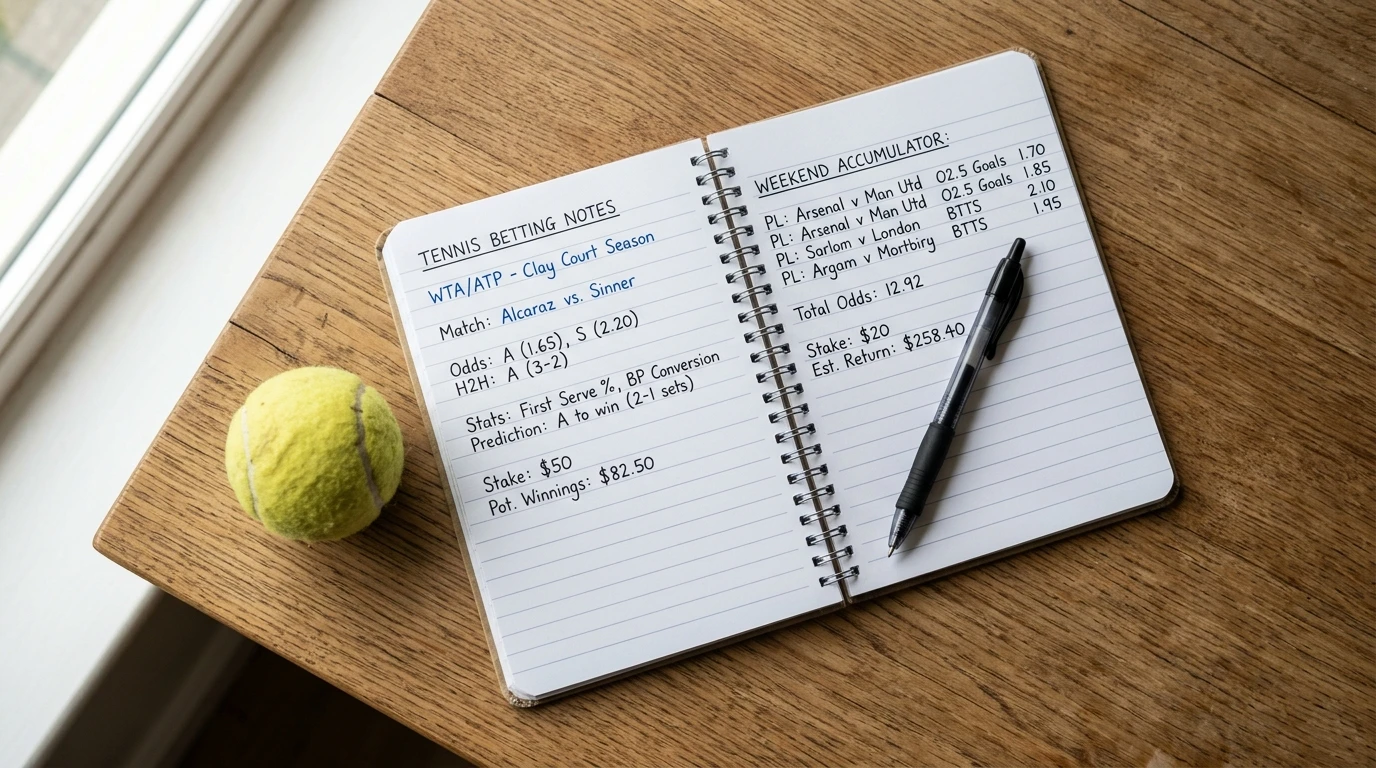 TENNIS BETTING NOTES
WTA/ATP - Clay Court Season
Match: Alcaraz vs. Sinner
Odds: A (1.65), S (2.20)
H2H: A (3-2)
Stats: First Serve %, BP Conversion
Prediction: A to win (2-1 sets)
Stake: $50
Pot. Winnings: $82.50
WEEKEND ACCUMULATOR:
PL: Arsenal v Man Utd O2.5 Goals 1.70
PL: Arsenal v Man Utd O2.5 Goals 1.85
PL: Sarlom v London BTTS 2.10
PL: Argam v Mortbiry BTTS 1.95
Total Odds: 12.92
Stake: $20
Est. Return: $258.40